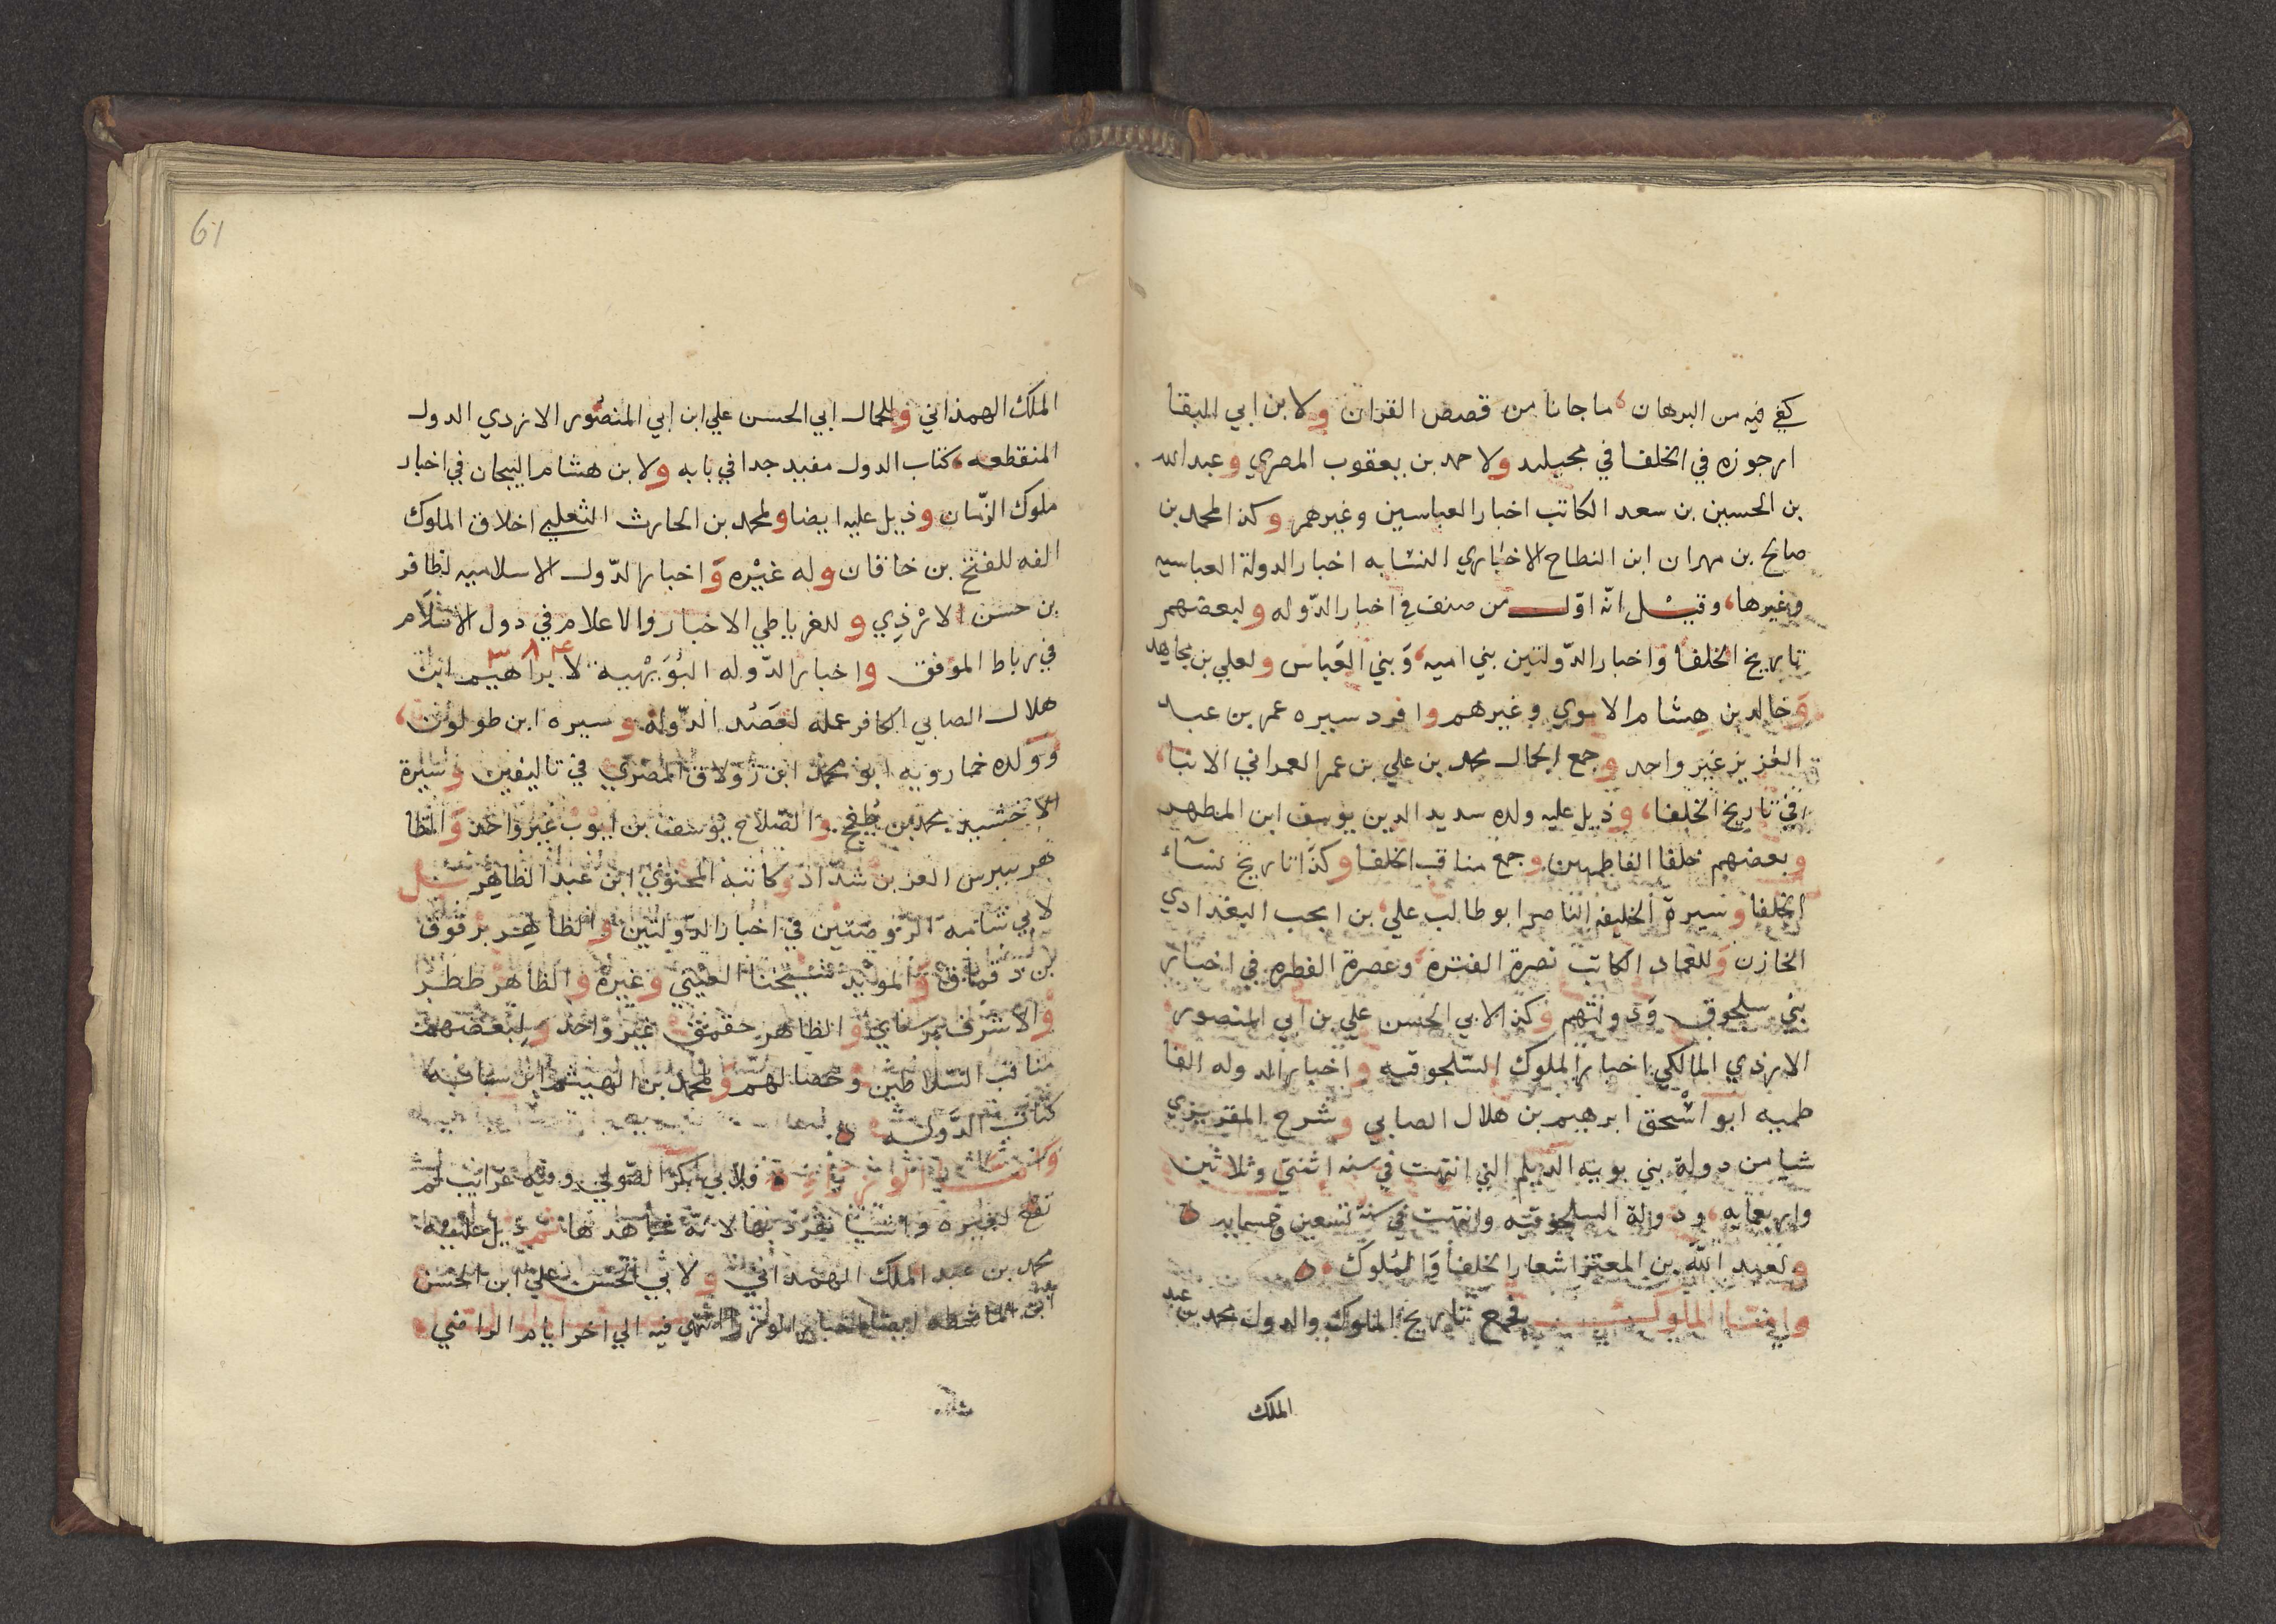 يكفي فيه من البرهان، ما جانا من قصص القران ولابن ابي البقا
ارجوزه في الخلفا في مجيليد ولاحمد بن يعقوب المصري وعبد الله
بن الحسين بن سعد الكاتب اخبار العباسين وغيرهم وكذا لمحمد بن
صالح بن مهران ابن النطاح الاخباري النسابه اخبار الدولة العباسيه
وغيرها، وقيل انه اول من صنف في اخبار الدوله ولبعضهم
تاريخ الخلفا واخبار الدولتين بني اميه، وبني العباس ولعلي بن مجاهد
وخالد بن هشام الاموي وغيرهم وافرد سيره عمر بن عبد
العزيز غير واحد وجمع الجمال محمد بن علي بن عمر العمراني الانبا،
في تاريخ الخلفا، وذيل عليه ولده سديد الدين يوسف ابن المطهر
وبعضهم خلفا الفاطمين وجمع مناقب الخلفا وكذا تاريخ نساء
الخلفا وسيرة الخليفه الناصر ابو طالب علي بن انجب البغدادي
الخازن وللعماد الكاتب نصرة الفتره، وعصرة الفطره في اخبار
بني سلجوق ودولتهم وكذا لابي الحسن علي بن ابي المنصور
الازدي المالكي اخبار الملوك السلجوقيه واخبار الدوله الفا
طميه ابو اسحق ابرهيم بن هلال الصابي وشرح المقريزي
شيا من دولة بني بويه الديلم التي انتهت في سنه اثنتي وثلاثين
واربعمايه، ودولة السلجوقيه وانتهت في سنة تسعين وخمسمايه
ولعبد الله بن المعتز اشعار الخلفا والملوك
وامتا الملوك فجمع تاريخ الملوك والدول محمد بن عبد
الملك
61
الملك الهمذاني وللجمال ابي الحسن علي ابن ابي المنصور الازدي الدول
المنقطعه، كتاب الدول مفيد جدا في بابه ولابن هشام التيجان في اخبار
ملوك الزمان وذيل عليه ايضا ولمحمد بن الحارث الثعلبي اخلاق الملوك
الفه للفتح بن خاقان وله غيره واخبار الدول الاسلاميه لظافر
بن حسن الازدي وللغرياطي الاخبار والاعلام في دول الاسلام
في رباط الموفق واخبار الدوله البويهية لابراهيم ابن
٣٨٤
هلال الصابي الكافر عمله لعضد الدوله وسيره ابن طولون،
وولده خمارويه ابو محمد ابن زولاق المصري في تاليفين وسيرة
الاخشيد محمد بن طغج والصلاح يوسف بن ايوب غير واحد والظا
هر بيبرس العز بن شداد وكاتبه المحنوي ابن عبد الظاهر بل
لابي شامه الروضتين في اخبار الدولتين والظاهر برقوق
بن دقماق والمويد شيخنا العيني وغيره والظاهر ططر
والاشرف برسباي والظاهر جقمق غير واحد ولبعضهم
مناقب السلاطين وخصالهم ولمحمد بن الهيثم ابن سبابه
كتاب الدوله
وامتا الوزراء فلابي بكر الصولي وفيه غرايب لم
تقع لغيره واشيا تفرد بها لانه شاهدها ثم ذيل عليه
محمد بن عبد الملك الهمداني ولابي الحسن علي ابن الحسن
ابن الماشطه ايضا اخبار الوزرا انتهي فيه الي اخر ايام الراضي